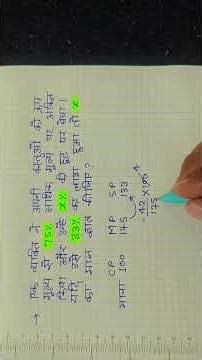 → एक व्यक्ति ने अपनी वस्तुओं को क्रय
मूल्य से 75% अधिक मूल्य पर अंकित
किया और उन्हें x% की छूट पर बेचा।
यदि उसे 33% का लाभ हुआ तो x
का मान ज्ञात कीजिए?
CP MP SP
माना 100 175 133
= 42 × 100 4
175